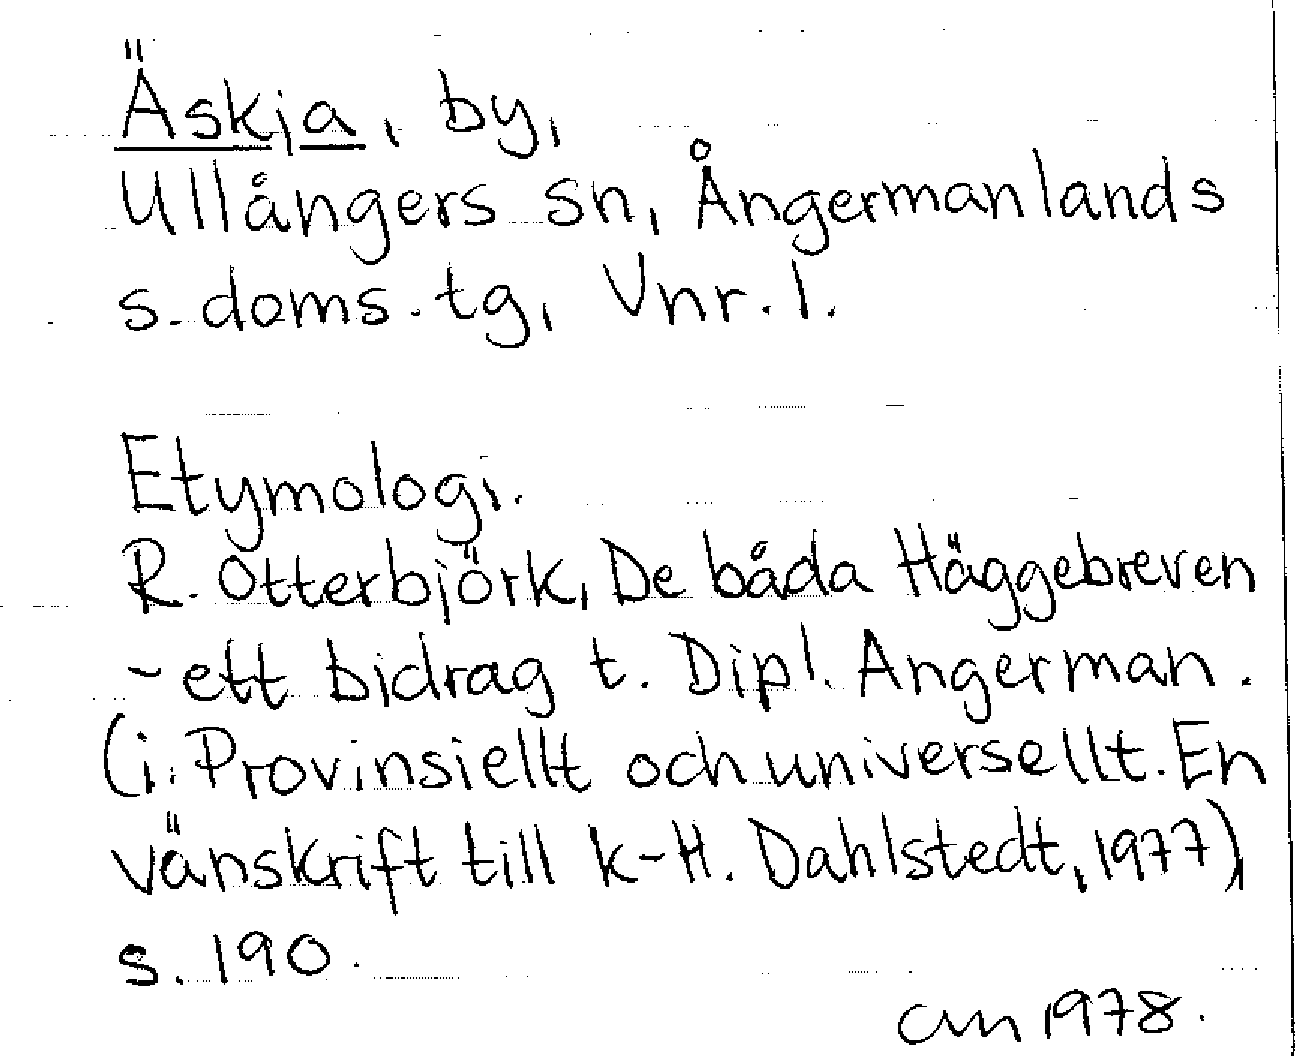 Äskja, by,
Ullångers sn, Ångermanlands
s. doms. tg, Vnr. 1.
Etymologi.
R. Otterbjörk, De båda Häggebreven
- ett bidrag t. Dipl. Angerman.
(i: Provinsiellt och universellt. En
vänskrift till K-H. Dahlstedt, 1977),
s. 190.
am 1978.